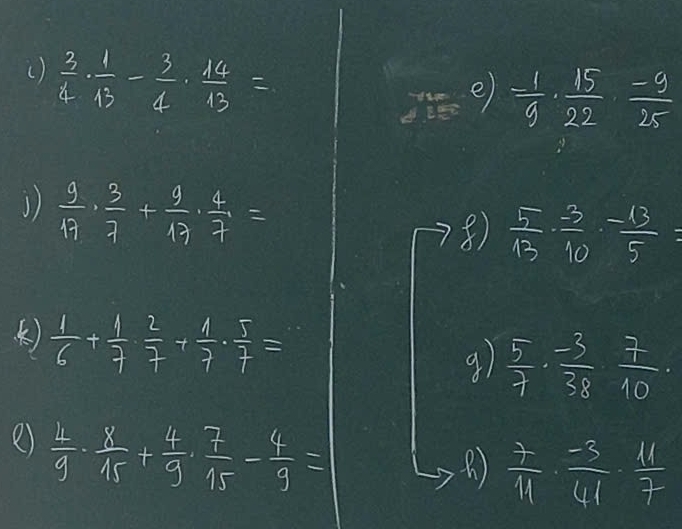 i) 3/4 · 1/13 − 3/4 · 14/13 =
j) 9/17 · 3/7 + 9/17 · 4/7 =
k) 1/6 + 1/7 · 2/7 + 1/7 · 5/7 =
l) 4/9 · 8/15 + 4/9 · 7/15 − 4/9 =
e) −1/9 · 15/22 · −9/25
f) 5/13 · −3/10 · −13/5 =
g) 5/7 · −3/38 · 7/10 ·
h) 7/11 · −3/41 · 11/7